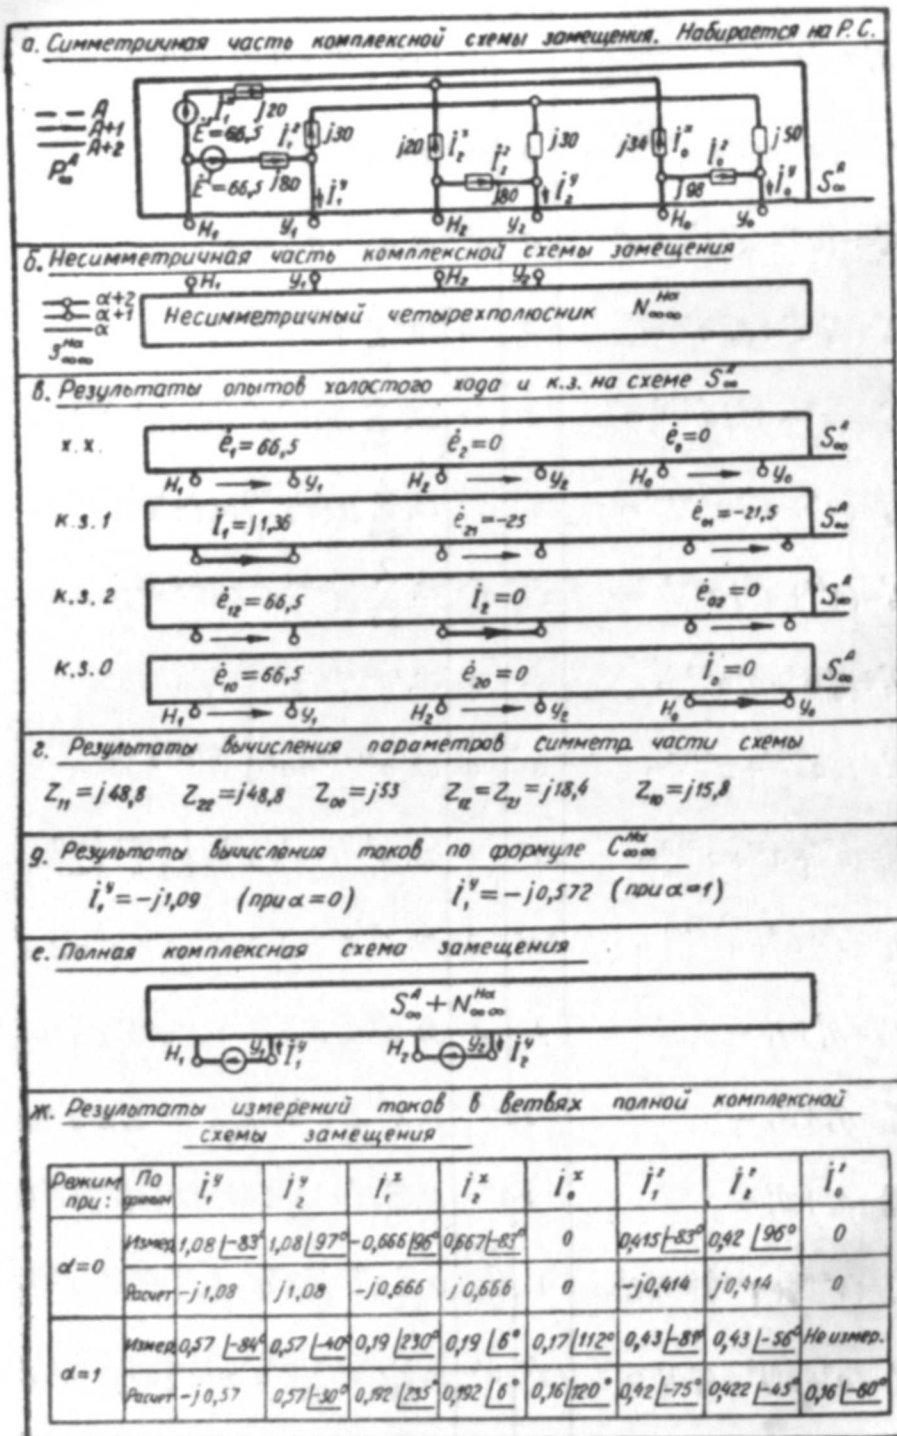 а. Симметричная часть комплексной схемы замещения. Набирается на Р. С.
A
A+1
A+2
P∞^A
İ₁ˣ j20
Ė=66,5 İ₁ᶻ j30
Ė=66,5 j80 İ₁ʸ
j20 İ₂ˣ İ₂ᶻ j30
j80 İ₂ʸ
İ₀ˣ İ₀ᶻ j50
j98 İ₀ʸ
S∞^A
H₁ У₁ H₂ У₂ H₀ У₀
б. Несимметричная часть комплексной схемы замещения
H₁ У₁ H₂ У₂
α+2
α+1
α
Несимметричный четырехполюсник N∞∞^Hα
З∞∞^Hα
в. Результаты опытов холостого хода и к.з. на схеме S∞^A
х.х. ė₁=66,5 ė₂=0 ė₀=0 S∞^A
H₁ У₁ H₂ У₂ H₀ У₀
к.з.1 İ₁=j1,36 ė₂₁=-25 ė₀₁=-21,5 S∞^A
к.з.2 ė₁₂=66,5 İ₂=0 ė₀₂=0 S∞^A
к.з.0 ė₁₀=66,5 ė₂₀=0 İ₀=0 S∞^A
H₁ У₁ H₂ У₂ H₀ У₀
г. Результаты вычисления параметров симметр. части схемы
Z₁₁=j48,8 Z₂₂=j48,8 Z₀₀=j53 Z₁₂=Z₂₁=j18,4 Z₁₀=j15,8
д. Результаты вычисления токов по формуле C∞∞^Hα
İ₁ʸ=-j1,09 (при α=0) İ₁ʸ=-j0,572 (при α=1)
е. Полная комплексная схема замещения
S∞^A+N∞∞^Hα
H₁ У₁ İ₁ʸ H₂ У₂ İ₂ʸ
ж. Результаты измерений токов в ветвях полной комплексной
схемы замещения
Режим при: По данным İ₁ʸ İ₂ʸ İ₁ˣ İ₂ˣ İ₀ˣ İ₁ᶻ İ₂ᶻ İ₀ᶻ
α=0 Измер. 1,08 |-83° 1,08 |97° -0,666 |96° 0,667 |-83° 0 0,415 |-83° 0,42 |96° 0
Расчет -j1,08 j1,08 -j0,666 j0,666 0 -j0,414 j0,414 0
α=1 Измер. 0,57 |-84° 0,57 |-40° 0,19 |230° 0,19 |6° 0,17 |112° 0,43 |-81° 0,43 |-56° Не измер.
Расчет -j0,57 0,57 |-30° 0,192 |235° 0,192 |6° 0,16 |120° 0,42 |-75° 0,422 |-45° 0,16 |-60°